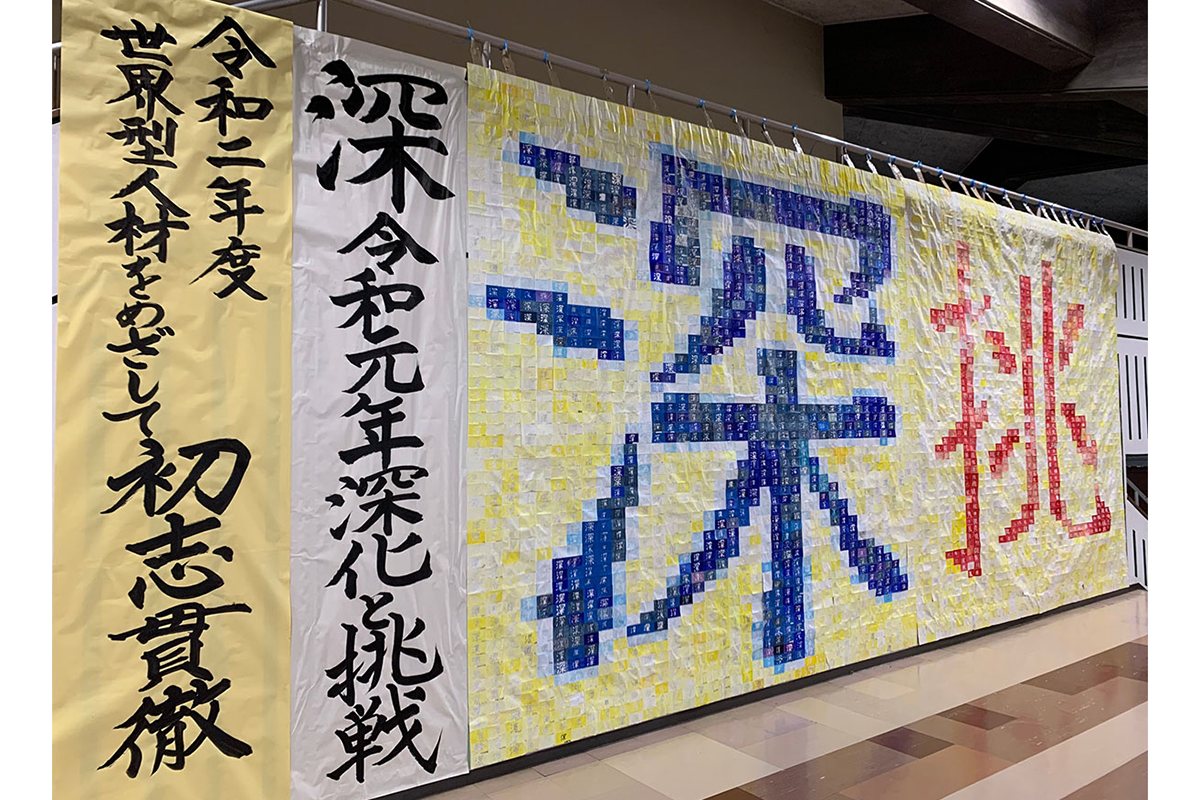 令和二年度
世界型人材をめざして初志貫徹
深 令和元年深化と挑戦
深
挑